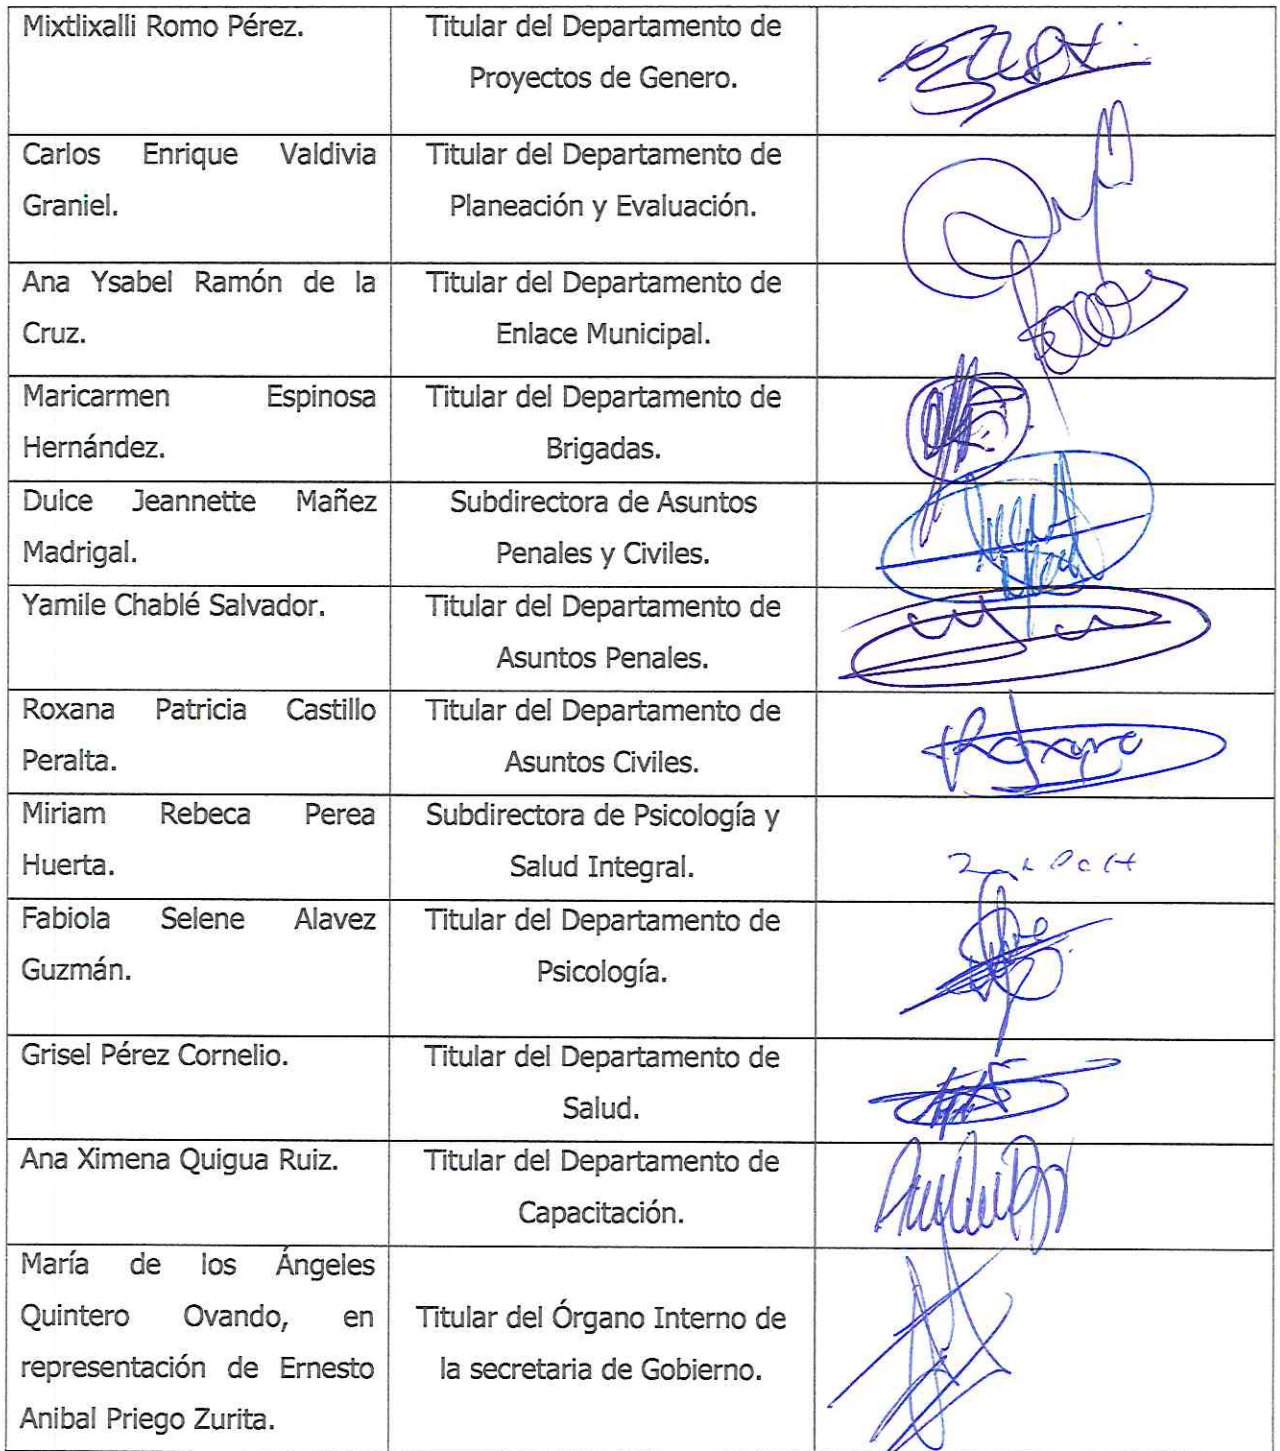 Mixtlixalli Romo Pérez.
Titular del Departamento de
Proyectos de Genero.
Carlos Enrique Valdivia
Graniel.
Titular del Departamento de
Planeación y Evaluación.
Ana Ysabel Ramón de la
Cruz.
Titular del Departamento de
Enlace Municipal.
Maricarmen Espinosa
Hernández.
Titular del Departamento de
Brigadas.
Dulce Jeannette Mañez
Madrigal.
Subdirectora de Asuntos
Penales y Civiles.
Yamile Chablé Salvador.
Titular del Departamento de
Asuntos Penales.
Roxana Patricia Castillo
Peralta.
Titular del Departamento de
Asuntos Civiles.
Miriam Rebeca Perea
Huerta.
Subdirectora de Psicología y
Salud Integral.
Fabiola Selene Alavez
Guzmán.
Titular del Departamento de
Psicología.
Grisel Pérez Cornelio.
Titular del Departamento de
Salud.
Ana Ximena Quigua Ruiz.
Titular del Departamento de
Capacitación.
María de los Ángeles
Quintero Ovando, en
representación de Ernesto
Anibal Priego Zurita.
Titular del Órgano Interno de
la secretaria de Gobierno.